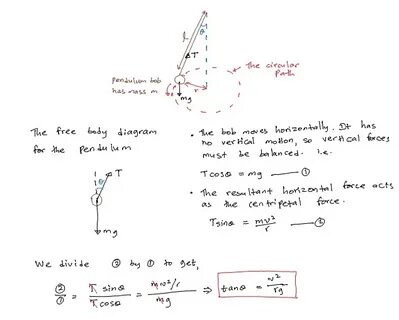 l
θ
T
The circular
path
pendulum bob
has mass m
r
mg
The free body diagram
for the pendulum
θ
T
mg
• The bob moves horizontally. It has
no vertical motion, so vertical forces
must be balanced. i.e.
Tcosθ = mg —— ①
• The resultant horizontal force acts
as the centripetal force.
Tsinθ = mv²/r —— ②
We divide ② by ① to get,
②/① = T sinθ / T cosθ = mv²/r / mg ⇒ tanθ = v²/rg